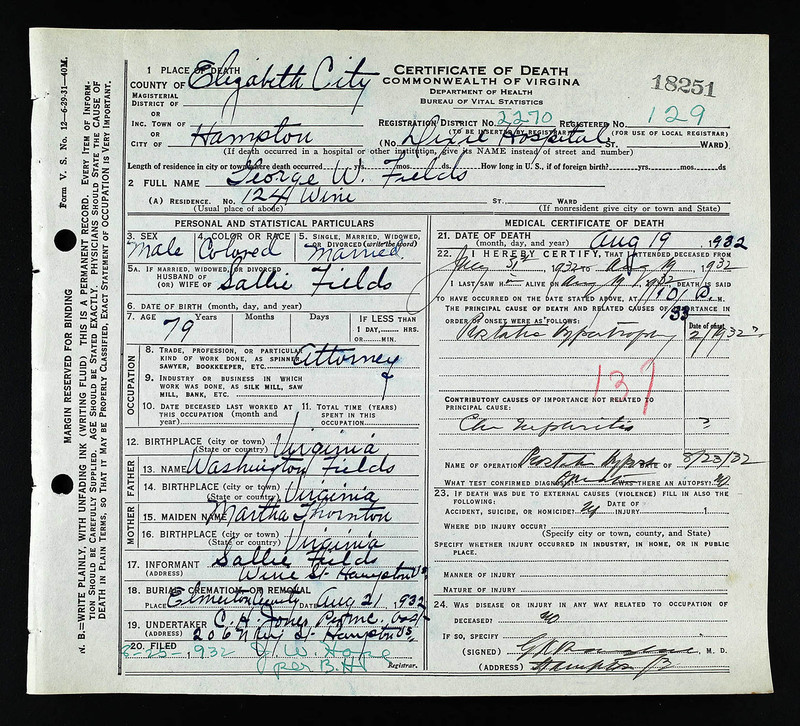 Form V. S. No. 12—6-29-31—40M.
MARGIN RESERVED FOR BINDING
N. B.—WRITE PLAINLY, WITH UNFADING INK (WRITING FLUID) THIS IS A PERMANENT RECORD. EVERY ITEM OF INFORMATION SHOULD BE CAREFULLY SUPPLIED. AGE SHOULD BE STATED EXACTLY. PHYSICIANS SHOULD STATE THE CAUSE OF DEATH IN PLAIN TERMS, SO THAT IT MAY BE PROPERLY CLASSIFIED, EXACT STATEMENT OF OCCUPATION IS VERY IMPORTANT.
1 PLACE OF DEATH
COUNTY OF Elizabeth City
MAGISTERIAL DISTRICT OF
OR
INC. TOWN OF
OR
CITY OF Hampton
CERTIFICATE OF DEATH
COMMONWEALTH OF VIRGINIA
DEPARTMENT OF HEALTH
BUREAU OF VITAL STATISTICS
18251
REGISTRATION DISTRICT NO. 2270 REGISTERED NO. 129
(TO BE INSERTED BY REGISTRAR) (FOR USE OF LOCAL REGISTRAR)
(No. Dixie Hospital ST. WARD)
(If death occurred in a hospital or other institution, give its NAME instead of street and number)
Length of residence in city or town where death occurred yrs. mos. ds How long in U. S., if of foreign birth? yrs. mos. ds
2 FULL NAME George W. Fields
(A) RESIDENCE. No. 124 Wine ST. WARD
(Usual place of abode) (If nonresident give city or town and State)
PERSONAL AND STATISTICAL PARTICULARS
3. SEX Male
4. COLOR OR RACE Colored
5. SINGLE, MARRIED, WIDOWED, OR DIVORCED (write the word) Married
5A. IF MARRIED, WIDOWED, OR DIVORCED
HUSBAND OF
(OR) WIFE OF Sallie Fields
6. DATE OF BIRTH (month, day, and year)
7. AGE 79 Years Months Days IF LESS THAN 1 DAY, HRS. OR MIN.
OCCUPATION
8. TRADE, PROFESSION, OR PARTICULAR KIND OF WORK DONE, AS SPINNER, SAWYER, BOOKKEEPER, ETC. Attorney
9. INDUSTRY OR BUSINESS IN WHICH WORK WAS DONE, AS SILK MILL, SAW MILL, BANK, ETC.
10. DATE DECEASED LAST WORKED AT THIS OCCUPATION (month and year)
11. TOTAL TIME (YEARS) SPENT IN THIS OCCUPATION
12. BIRTHPLACE (city or town) (State or country) Virginia
FATHER
13. NAME Washington Fields
14. BIRTHPLACE (city or town) (State or country) Virginia
MOTHER
15. MAIDEN NAME Martha Thornton
16. BIRTHPLACE (city or town) (State or country) Virginia
17. INFORMANT Sallie Fields
(ADDRESS) Wine St. Hampton Va
18. BURIAL, CREMATION OR REMOVAL
PLACE Elmerton DATE Aug 21, 1932
19. UNDERTAKER C. H. Jones
(ADDRESS) 206 N King St. Hampton Va.
20. FILED 8-25-, 1932 J. W. Hope
per B. H. Registrar.
MEDICAL CERTIFICATE OF DEATH
21. DATE OF DEATH (month, day, and year) Aug 19, 1932
22. I HEREBY CERTIFY, THAT I ATTENDED DECEASED FROM
1932 TO Aug 19, 1932
I LAST SAW H ALIVE ON Aug 19, 1932 DEATH IS SAID
TO HAVE OCCURRED ON THE DATE STATED ABOVE, AT P. M.
THE PRINCIPAL CAUSE OF DEATH AND RELATED CAUSES OF IMPORTANCE IN ORDER OF ONSET WERE AS FOLLOWS:
33
Date of onset
Prostatic Hypertrophy 2/1932?
137
CONTRIBUTORY CAUSES OF IMPORTANCE NOT RELATED TO PRINCIPAL CAUSE:
Chr Nephritis ?
NAME OF OPERATION Prostatic DATE OF 8/23/32
WHAT TEST CONFIRMED DIAGNOSIS? WAS THERE AN AUTOPSY? No
23. IF DEATH WAS DUE TO EXTERNAL CAUSES (VIOLENCE) FILL IN ALSO THE FOLLOWING:
ACCIDENT, SUICIDE, OR HOMICIDE? No DATE OF INJURY 1
WHERE DID INJURY OCCUR?
(Specify city or town, county, and State)
SPECIFY WHETHER INJURY OCCURRED IN INDUSTRY, IN HOME, OR IN PUBLIC PLACE.
MANNER OF INJURY
NATURE OF INJURY
24. WAS DISEASE OR INJURY IN ANY WAY RELATED TO OCCUPATION OF DECEASED? No
IF SO, SPECIFY
(SIGNED) M. D.
(ADDRESS) Hampton Va